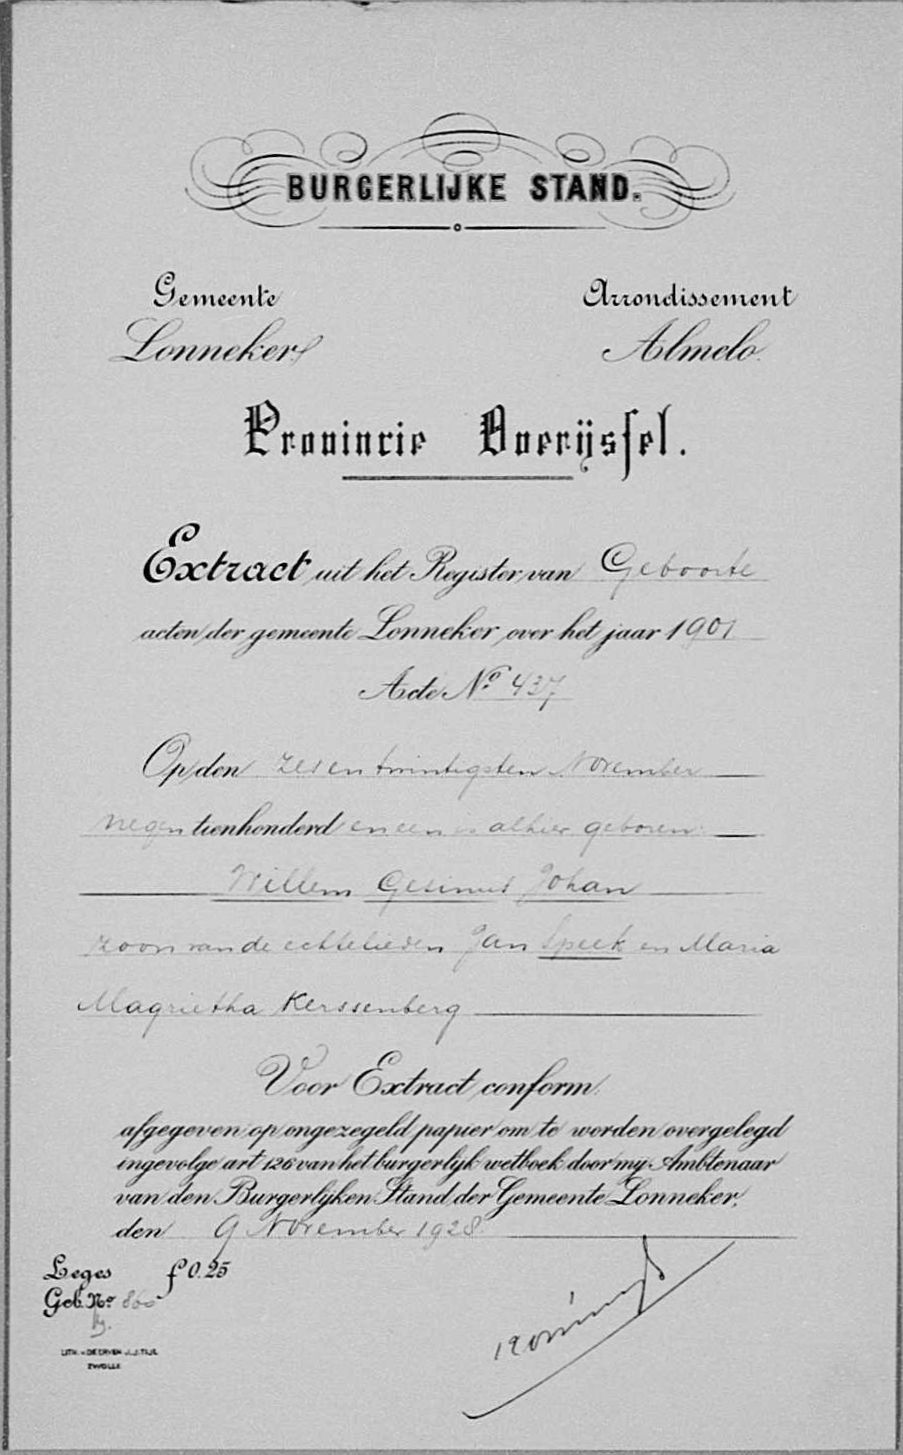 BURGERLIJKE STAND.
Gemeente Arrondissement
Lonneker Almelo.
Provincie Overijssel.
Extract uit het Register van Geboorte
acten der gemeente Lonneker, over het jaar 1901
Acte No. 437
Op den zes en twintigsten November
negentienhonderd en een is alhier geboren:
Willem Gesinus Johan
zoon van de echtelieden Jan Speek en Maria
Magrietha Kerssenberg
Voor Extract conform.
afgegeven op ongezegeld papier om te worden overgelegd
ingevolge art 126 van het burgerlijk wetboek door mij Ambtenaar
van den Burgerlijken Stand der Gemeente Lonneker,
den 9 November 1928.
Leges f 0.25
Geb. No. 860
LITH. v. DE ERVEN J.J. TIJL
ZWOLLE